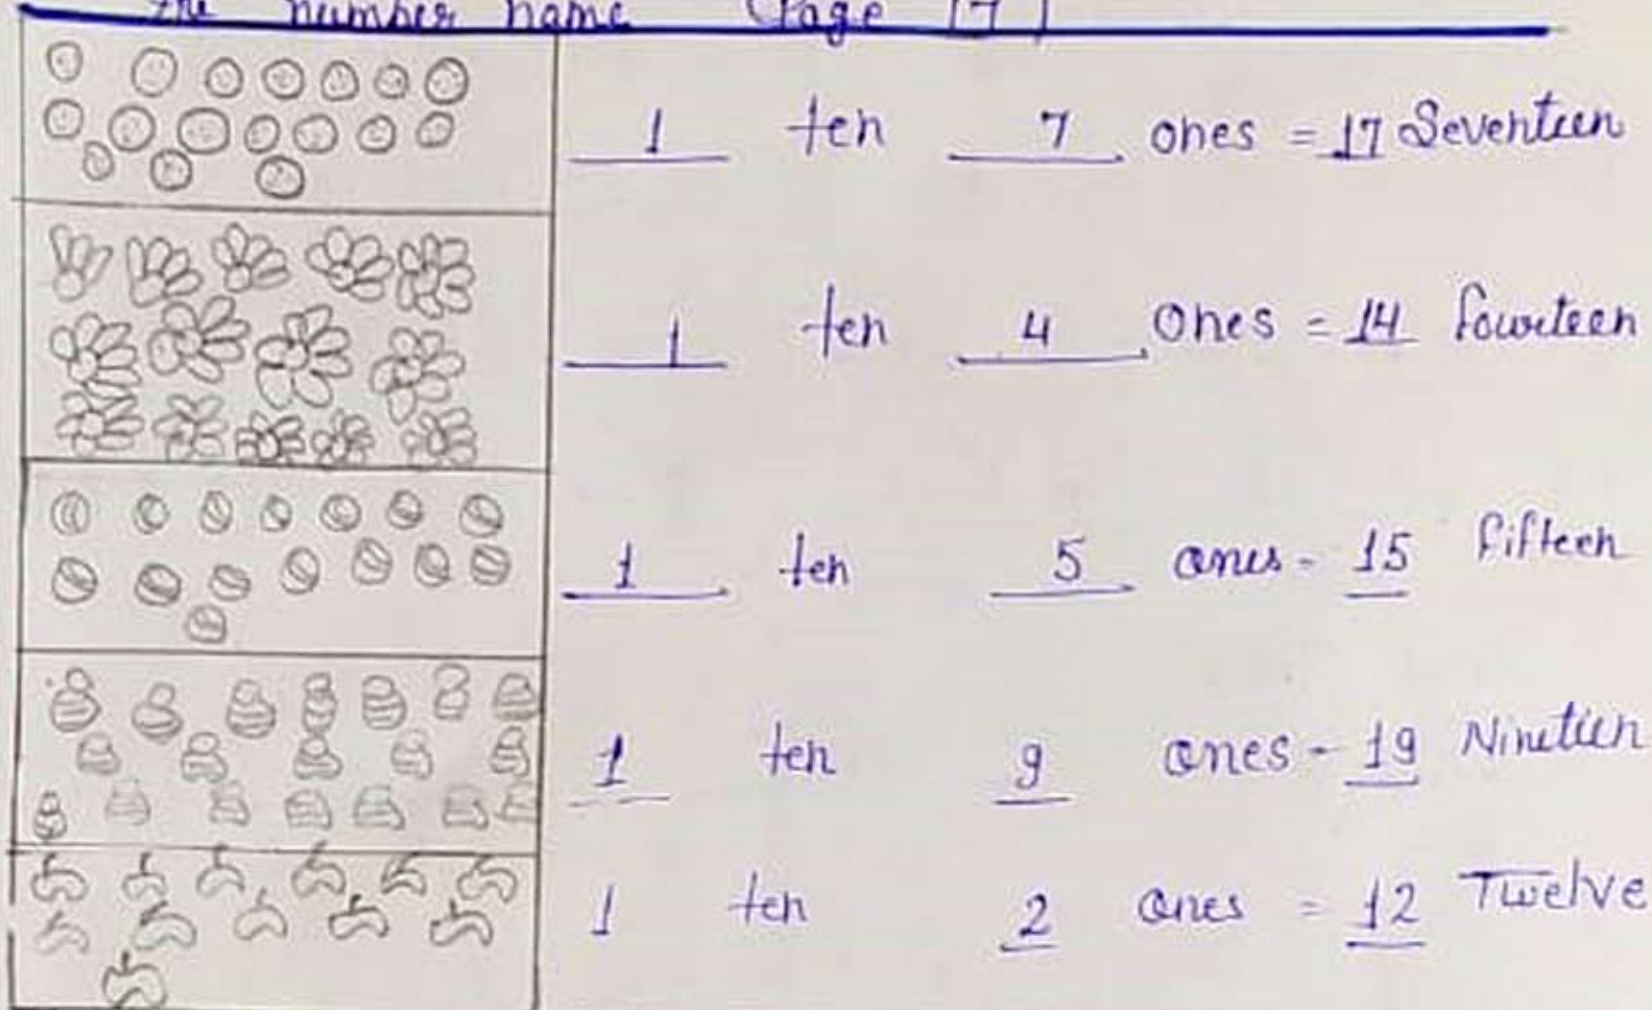 the number name (Page 17)
1 ten 7 ones = 17 Seventeen
1 ten 4 ones = 14 fourteen
1 ten 5 ones - 15 fifteen
1 ten 9 ones - 19 Nineteen
1 ten 2 ones = 12 Twelve